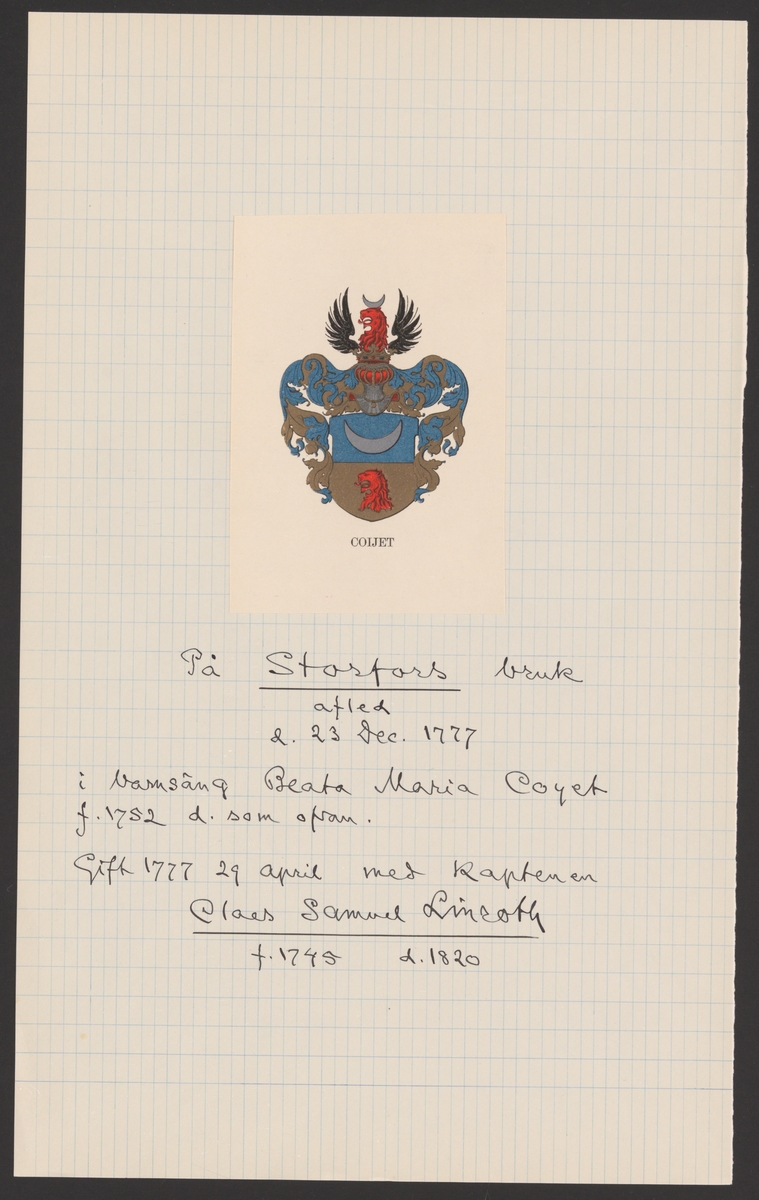 COIJET
På Storfors bruk
afled
d. 23 Dec. 1777
i barnsäng Beata Maria Coyet
f. 1752 d. som ofvan.
Gift 1777 29 april med Kaptenen
Claes Samuel Lincoth
f. 1745 d. 1820